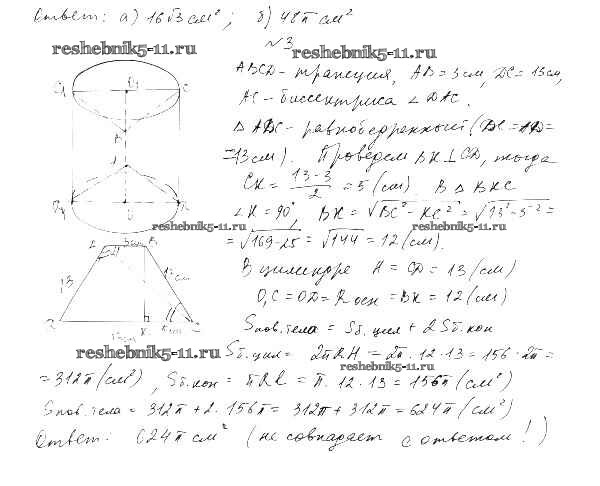 Ответ: а) 16√3 см²; б) 48π см²
№3
reshebnik5-11.ru
reshebnik5-11.ru
ABCD - трапеция, AB = 3 см, DC = 13 см,
AC - биссектриса ∠ DAC.
Δ ADC - равнобедренный (DC = AD =
= 13 см). Проведем BK ⊥ CD, тогда
CK = (13-3)/2 = 5 (см) В Δ BKC
∠K = 90°, BK = √BC² - KC² = √13² - 5² =
reshebnik5-11.ru
reshebnik5-11.ru
= √169-25 = √144 = 12 (см).
В цилиндре H = CD = 13 (см)
O₁C = OD = R осн = BK = 12 (см)
S пов. тела = S б. цил + 2 S б. кон
reshebnik5-11.ru
S б. цил = 2πRH = 2π · 12 · 13 = 156 · 2π =
reshebnik5-11.ru
= 312π (см²), S б. кон = πRL = π · 12 · 13 = 156π (см²)
S пов. тела = 312π + 2 · 156π = 312π + 312π = 624π (см²)
Ответ: 624π см² (не совпадает с ответом!)